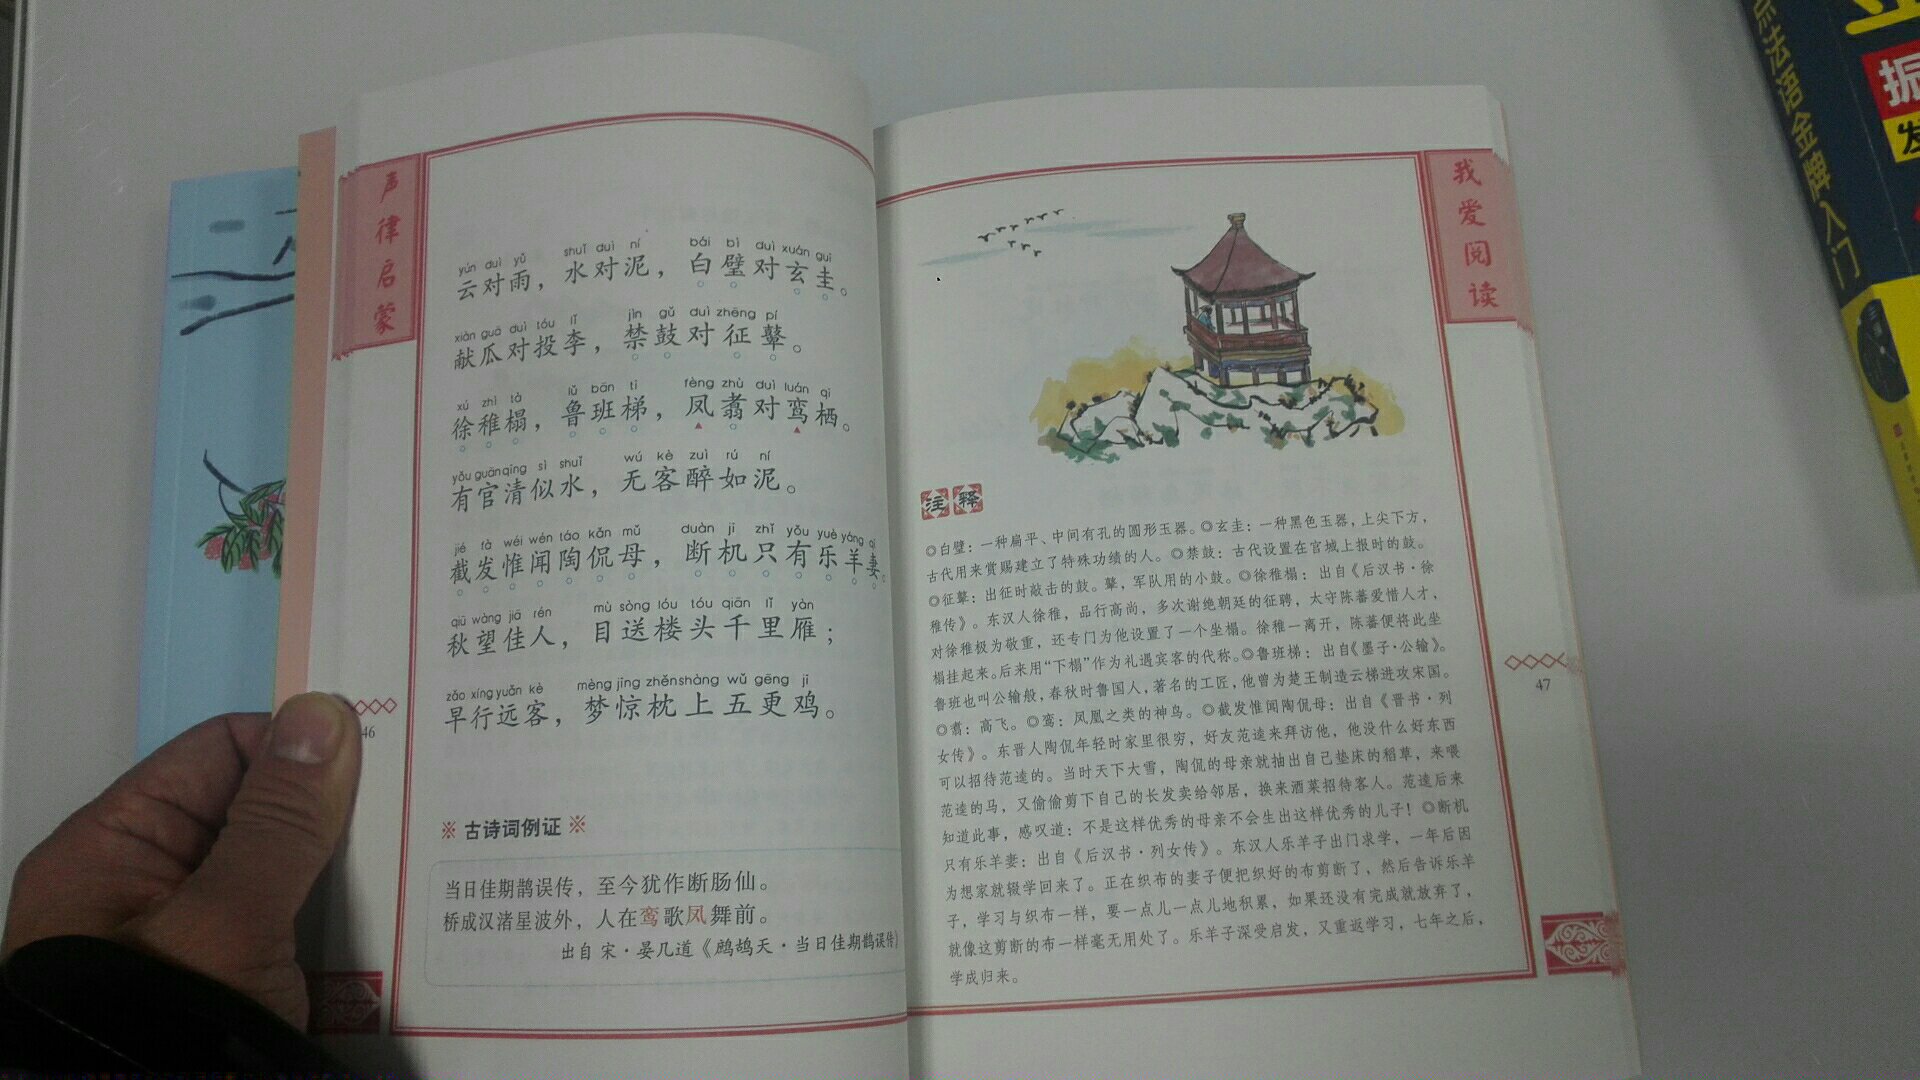 声律启蒙
yún duì yǔ shuǐ duì ní bái bì duì xuán guī
云对雨，水对泥，白璧对玄圭。
xiàn guā duì tóu lǐ jìn gǔ duì zhēng pí
献瓜对投李，禁鼓对征鼙。
xú zhì tà lǔ bān tī fèng zhù duì luán qī
徐稚榻，鲁班梯，凤翥对鸾栖。
yǒu guān qīng sì shuǐ wú kè zuì rú ní
有官清似水，无客醉如泥。
jié fà wéi wén táo kǎn mǔ duàn jī zhǐ yǒu yuè yáng qī
截发惟闻陶侃母，断机只有乐羊妻。
qiū wàng jiā rén mù sòng lóu tóu qiān lǐ yàn
秋望佳人，目送楼头千里雁；
zǎo xíng yuǎn kè mèng jīng zhěn shàng wǔ gēng jī
早行远客，梦惊枕上五更鸡。
46
※ 古诗词例证 ※
当日佳期鹊误传，至今犹作断肠仙。
桥成汉渚星波外，人在鸾歌凤舞前。
出自 宋·晏几道《鹧鸪天·当日佳期鹊误传》
我爱阅读
注释
◎白璧：一种扁平、中间有孔的圆形玉器。◎玄圭：一种黑色玉器，上尖下方，
古代用来赏赐建立了特殊功绩的人。◎禁鼓：古代设置在宫城上报时的鼓。
◎征鼙：出征时敲击的鼓。鼙，军队用的小鼓。◎徐稚榻：出自《后汉书·徐
稚传》。东汉人徐稚，品行高尚，多次谢绝朝廷的征聘，太守陈蕃爱惜人才，
对徐稚极为敬重，还专门为他设置了一个坐榻。徐稚一离开，陈蕃便将此坐
榻挂起来。后来用“下榻”作为礼遇宾客的代称。◎鲁班梯：出自《墨子·公输》。
鲁班也叫公输般，春秋时鲁国人，著名的工匠，他曾为楚王制造云梯进攻宋国。
◎翥：高飞。◎鸾：凤凰之类的神鸟。◎截发惟闻陶侃母：出自《晋书·列
女传》。东晋人陶侃年轻时家里很穷，好友范逵来拜访他，他没什么好东西
可以招待范逵的。当时天下大雪，陶侃的母亲就抽出自己垫床的稻草，来喂
范逵的马，又偷偷剪下自己的长发卖给邻居，换来酒菜招待客人。范逵后来
知道此事，感叹道：不是这样优秀的母亲不会生出这样优秀的儿子！◎断机
只有乐羊妻：出自《后汉书·列女传》。东汉人乐羊子出门求学，一年后因
为想家就辍学回来了。正在织布的妻子便把织好的布剪断了，然后告诉乐羊
子，学习与织布一样，要一点儿一点儿地积累，如果还没有完成就放弃了，
就像这剪断的布一样毫无用处了。乐羊子深受启发，又重返学习，七年之后，
学成归来。
47
法语金牌入门
振